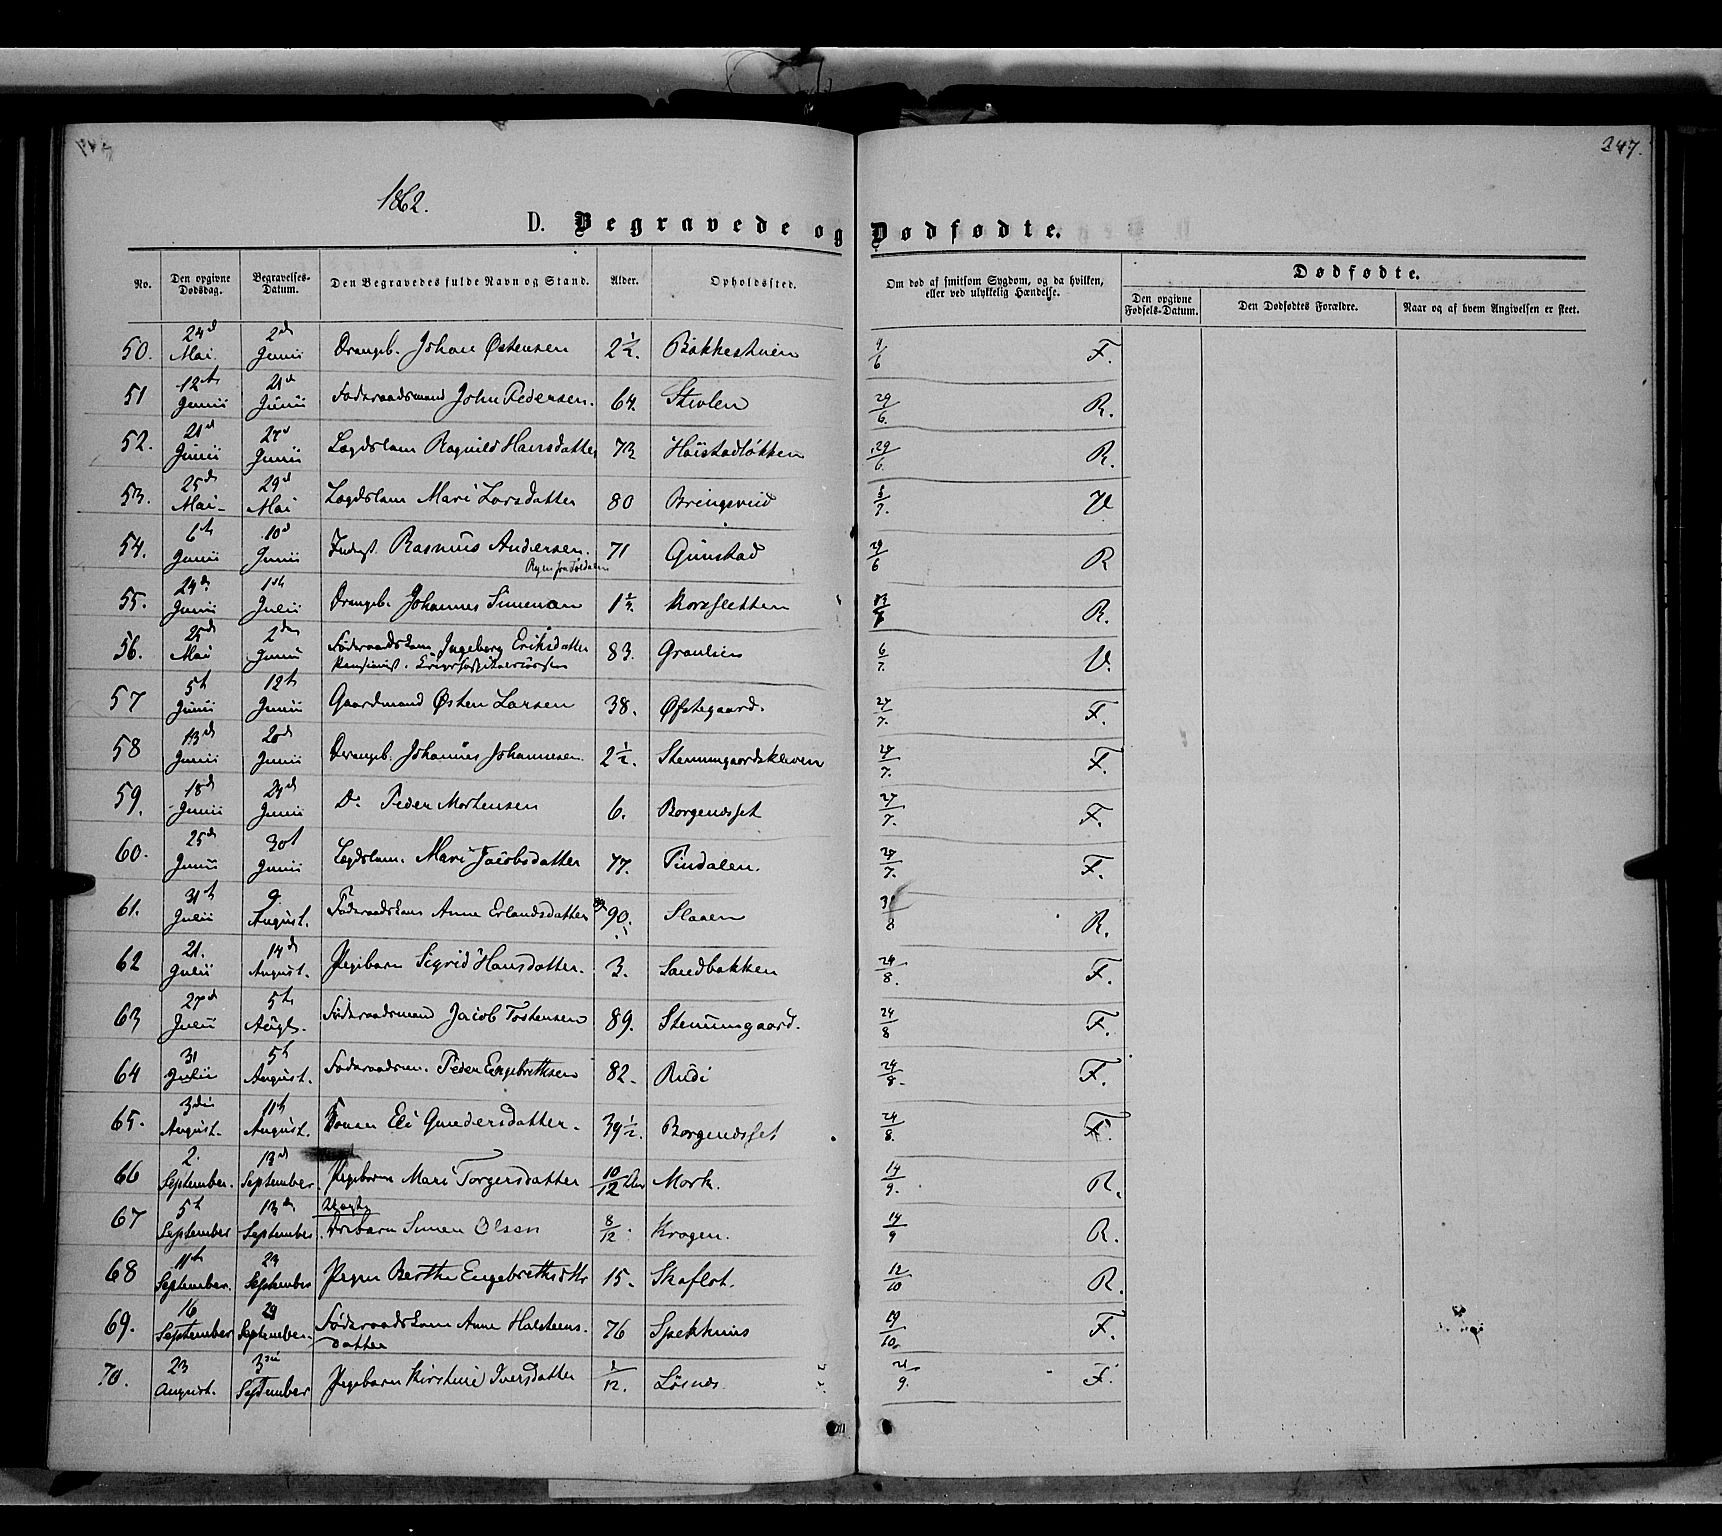 247.
1862.
D. Begravede og Dødfødte.
No. Den opgivne Dødsdag. Begravelses-Datum. Den Begravedes fulde Navn og Stand. Alder. Opholdssted. Om død af smitsom Sygdom, og da hvilken, eller ved ulykkelig Hændelse. Dødfødte.
Den opgivne Fødsels-Datum. Den Dødfødtes Forældre. Naar og af hvem Angivelsen er skeet.
50. 24d Mai 2d Junii Drengeb. Johan Østensen 2 1/2. Bakkestuen 9/6 F.
51 12te Junii 21d Junii Føderaadsmand John Pedersen. 64. Stivlen 29/6. R.
52. 21d Junii 27d Junii Lægdslem Ragnild Hansdatter 73 Høistadløkken 29/6. R.
53. 25d Mai 29d Mai Lægdslem Mari Larsdatter 80 Bringsveid 6/7. V
54. 6th Junii 10d Junii Inderst Rasmus Andersen. 71 Gunstad 29/6 R
55. 24d Junii 1ste Julii Drengeb. Johannes Simensen 1 1/2. Korsfletten R.
56. 25d Mai 2den Junii Føderaadskone Ingeborg Eriksdatter 83. Graulien 6/7. V.
57 5t Junii 12t Junii Gaardmand Østen Larsen 38. Øftegaard. 27/7. F.
58 13d Junii 20d Junii Drengeb. Johannes Johannesen. 2 1/2. Stenumgaardskleven 27/7. F.
59. 18d Junii 23d Junii Do Peder Mortensen 6. Borgendsset 27/7. F.
60. 25d Junii 30t Junii Lægdslem. Mari Jacobsdatter 77. Tindalen. 27/7. F.
61. 31t Julii 9. August. Føderaadskone Anne Erlandsdatter 90. Slaaen 31/8 R.
62 21. Julii 14d August. Pigebarn Sigrid Hansdatter. 3. Sandbakken 24/8. F.
63 27d Julii 5te Augs. Føderaadsmand Jacob Tostensen 89. Stenumgaard. 24/8 F.
64 31 Julii 5t August. Føderaadsm. Peder Engebrethsen 82. Rudi 24/8. F.
65. 3die August. 11t August. Konen Eli Gundersdatter. 39 1/2. Borgendsset 24/8. F.
66 2. September. 13d September. Pigebarn Mari Torgersdatter 10/12 Mork. 14/9. R.
67 5t September 13de September Uægte Drebarn Simen Olsen 8/12. Krogen. 14/9 R.
68 11te September. 23 September Pigen Berthe Engebrethsdtr 15. Skaflot. 12/10 R.
69. 16 September 29 September. Føderaadskone Anne Halsteens-datter 76 Spekhuus 19/10. F.
70. 23 August. 3die September Pigebarn Kirstine Iversdatter 1/12. Løsnæs 21/9. F.